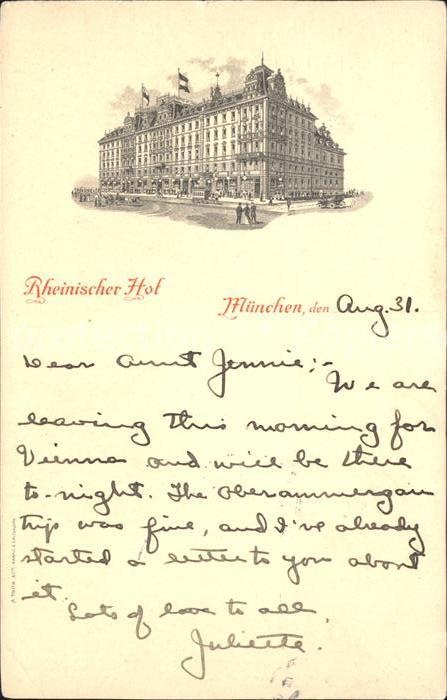 Rheinischer Hof
München, den Aug. 31.
Dear Aunt Jennie;-
We are
leaving this morning for
Vienna and will be there
to-night. The Oberammergau
trip was fine, and I've already
started a letter to you about
it.
Lots of love to all,
Juliette.